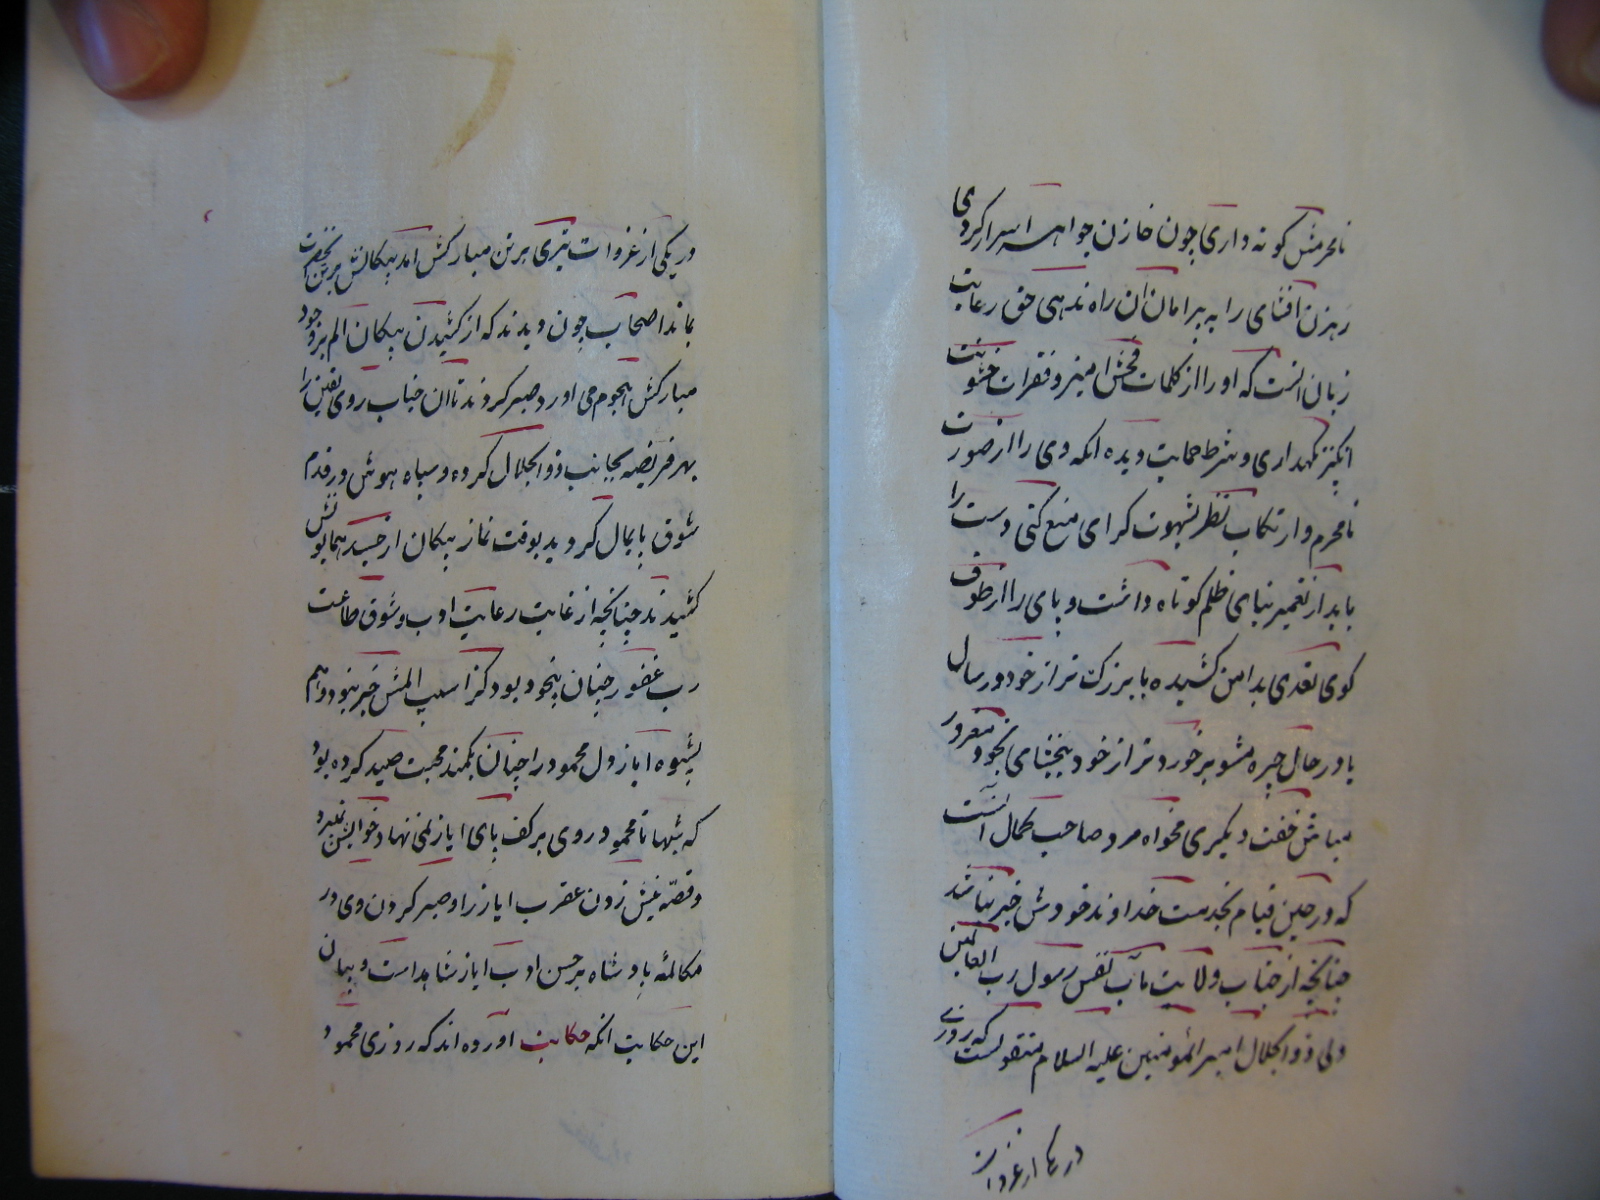 نامحرمش کوته داری چون خازن جواهر اسرار کردی
رهزن افشای را به پیرامان آن راه ندهی حق رعایت
زبان انست که او را از کلمات فحش امیز و فقرات خشونت
انگیز نگهداری و شرط حمایت دیده انکه وی را از صورت
نامحرم و ارتکاب نظر بشهوت کرای منع کنی دست را
باید از تعمیر بنای ظلم کوتاه داشت و پای را از طوف
کوی تعدی بدامن کشیده با بزرکتر از خود در سال
یا در حال چیره مشو بر خوردتر از خود ببخشای بخود مغرور
مباش خفت دیکری مخواه مرد صاحب کمال انست
که در حین قیام بخدمت خداوند خودش خبر نباشد
چنانچه از جناب ولایت مآب نفس رسول رب العالمین
ولی ذو الجلال امیر المؤمنین علیه السلام منقولست که روزی
در یکی از غزوات
در یکی از غزوات تیری بر تن مبارکش امد پیکانش در بدن انحضرت
بماند اصحاب چون دیدند که از کشیدن پیکان الم بر وجود
مبارکش هجوم می اورد صبر کردند تا ان جناب روی یقین را
بهر فریضه بجانب ذو الجلال کرده و سپاه هوش در قدم
شوق پایمال کردید بوقت نماز پیکان از جسد همایونش
کشیدند چنانچه از غایت رعایت ادب و شوق طاعت
رب غفور چنان بیخود بود کز اسیب المش خبر نبود و هم
بشیوه ایاز دل محمود را چنان بکمند محبت صید کرده بود
که شبها تا محمود روی بر کف پای ایاز نمی نهاد خوابش نمیبرد
و قصّه نیش زدن عقرب ایاز را و صبر کردن وی در
مکالمهٔ پادشاه بر حسن ادب ایاز شاهد است و بیان
این حکایت انکه حکایت اورده اند که روزی محمود